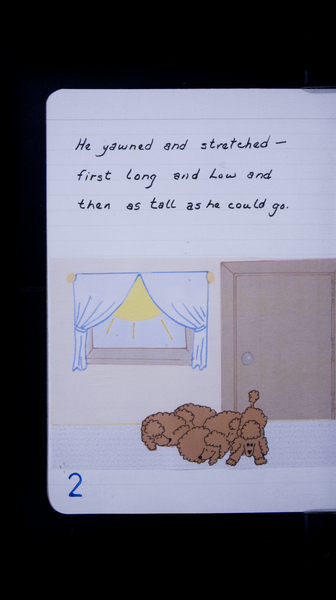 He yawned and stretched —
first long and low and
then as tall as he could go.
2